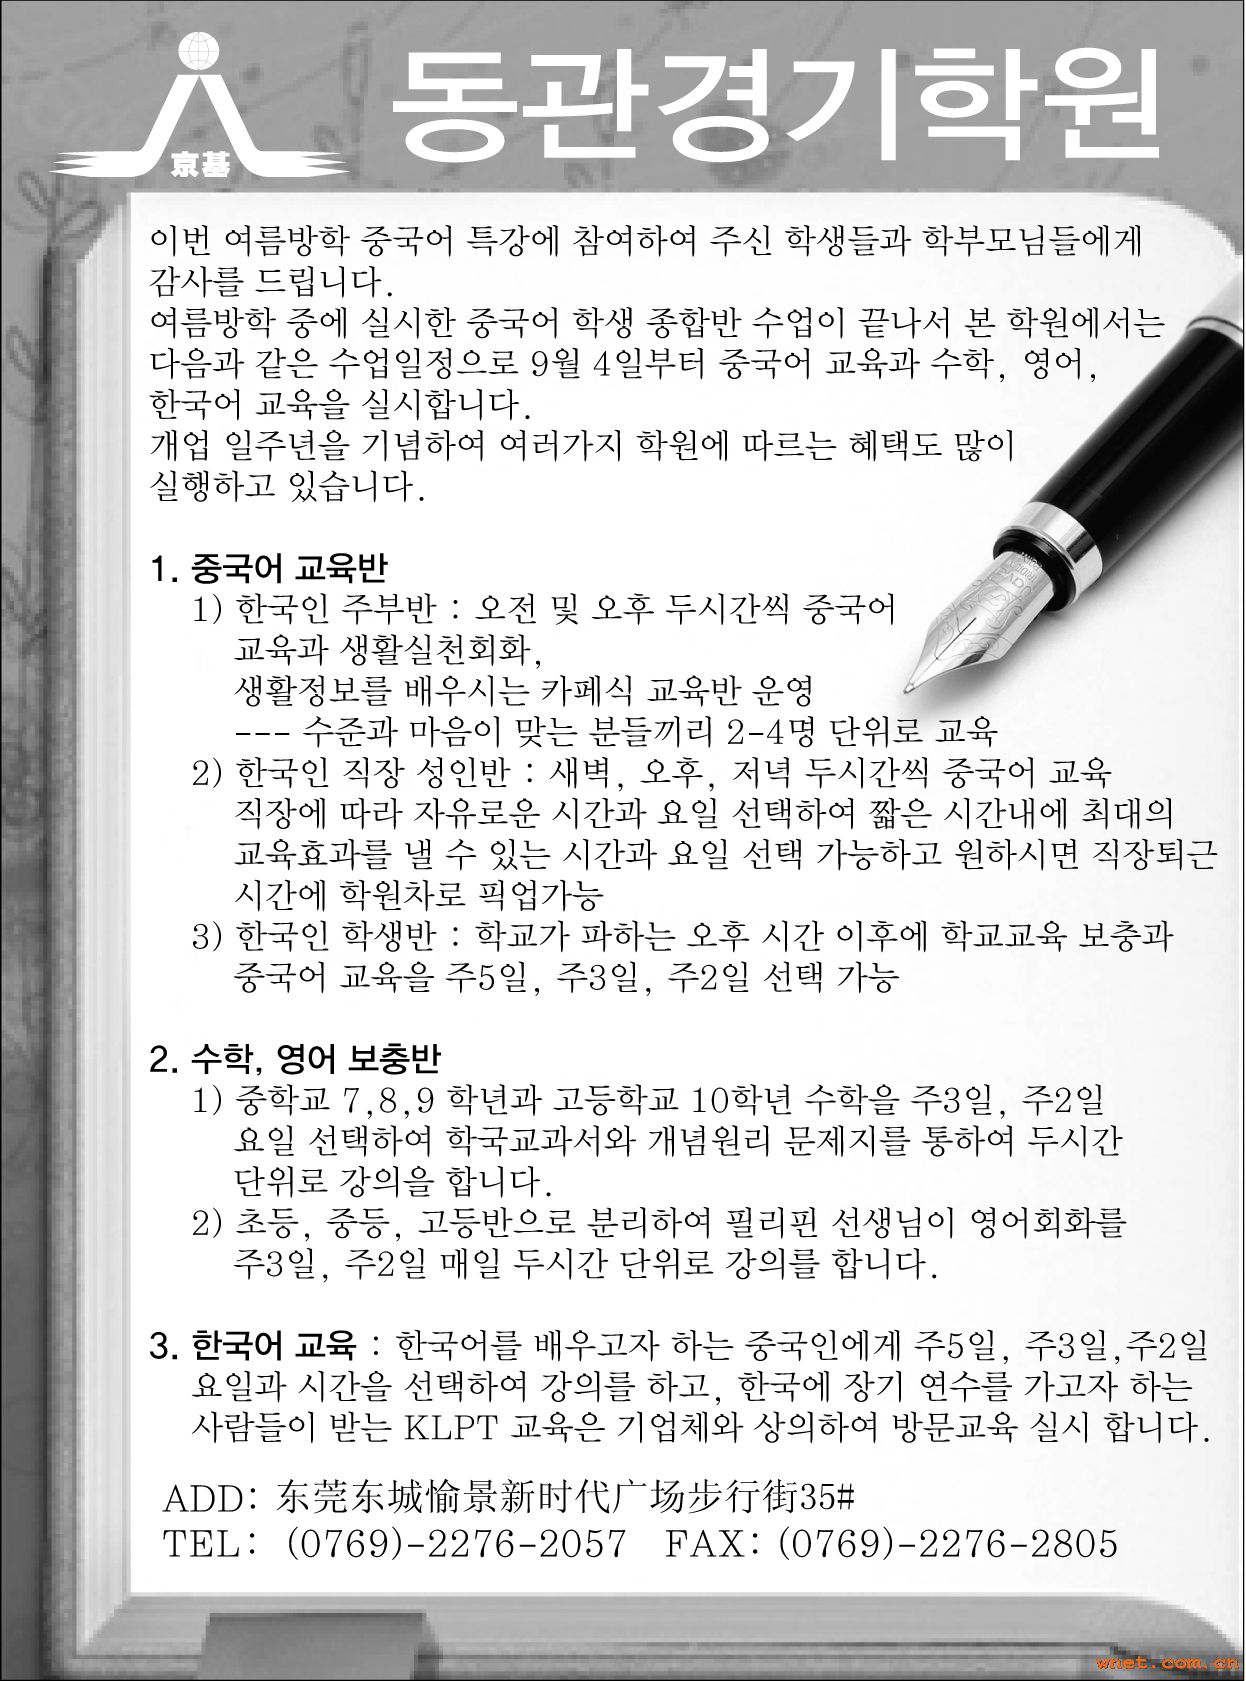 동관경기학원
京基
이번 여름방학 중국어 특강에 참여하여 주신 학생들과 학부모님들에게
감사를 드립니다.
여름방학 중에 실시한 중국어 학생 종합반 수업이 끝나서 본 학원에서는
다음과 같은 수업일정으로 9월 4일부터 중국어 교육과 수학, 영어,
한국어 교육을 실시합니다.
개업 일주년을 기념하여 여러가지 학원에 따르는 혜택도 많이
실행하고 있습니다.
1. 중국어 교육반
1) 한국인 주부반 : 오전 및 오후 두시간씩 중국어
교육과 생활실천회화,
생활정보를 배우시는 카페식 교육반 운영
--- 수준과 마음이 맞는 분들끼리 2-4명 단위로 교육
2) 한국인 직장 성인반 : 새벽, 오후, 저녁 두시간씩 중국어 교육
직장에 따라 자유로운 시간과 요일 선택하여 짧은 시간내에 최대의
교육효과를 낼 수 있는 시간과 요일 선택 가능하고 원하시면 직장퇴근
시간에 학원차로 픽업가능
3) 한국인 학생반 : 학교가 파하는 오후 시간 이후에 학교교육 보충과
중국어 교육을 주5일, 주3일, 주2일 선택 가능
2. 수학, 영어 보충반
1) 중학교 7,8,9 학년과 고등학교 10학년 수학을 주3일, 주2일
요일 선택하여 학국교과서와 개념원리 문제지를 통하여 두시간
단위로 강의을 합니다.
2) 초등, 중등, 고등반으로 분리하여 필리핀 선생님이 영어회화를
주3일, 주2일 매일 두시간 단위로 강의를 합니다.
3. 한국어 교육 : 한국어를 배우고자 하는 중국인에게 주5일, 주3일,주2일
요일과 시간을 선택하여 강의를 하고, 한국에 장기 연수를 가고자 하는
사람들이 받는 KLPT 교육은 기업체와 상의하여 방문교육 실시 합니다.
ADD: 东莞东城愉景新时代广场步行街35#
TEL: (0769)-2276-2057 FAX: (0769)-2276-2805
wnet.com.cn